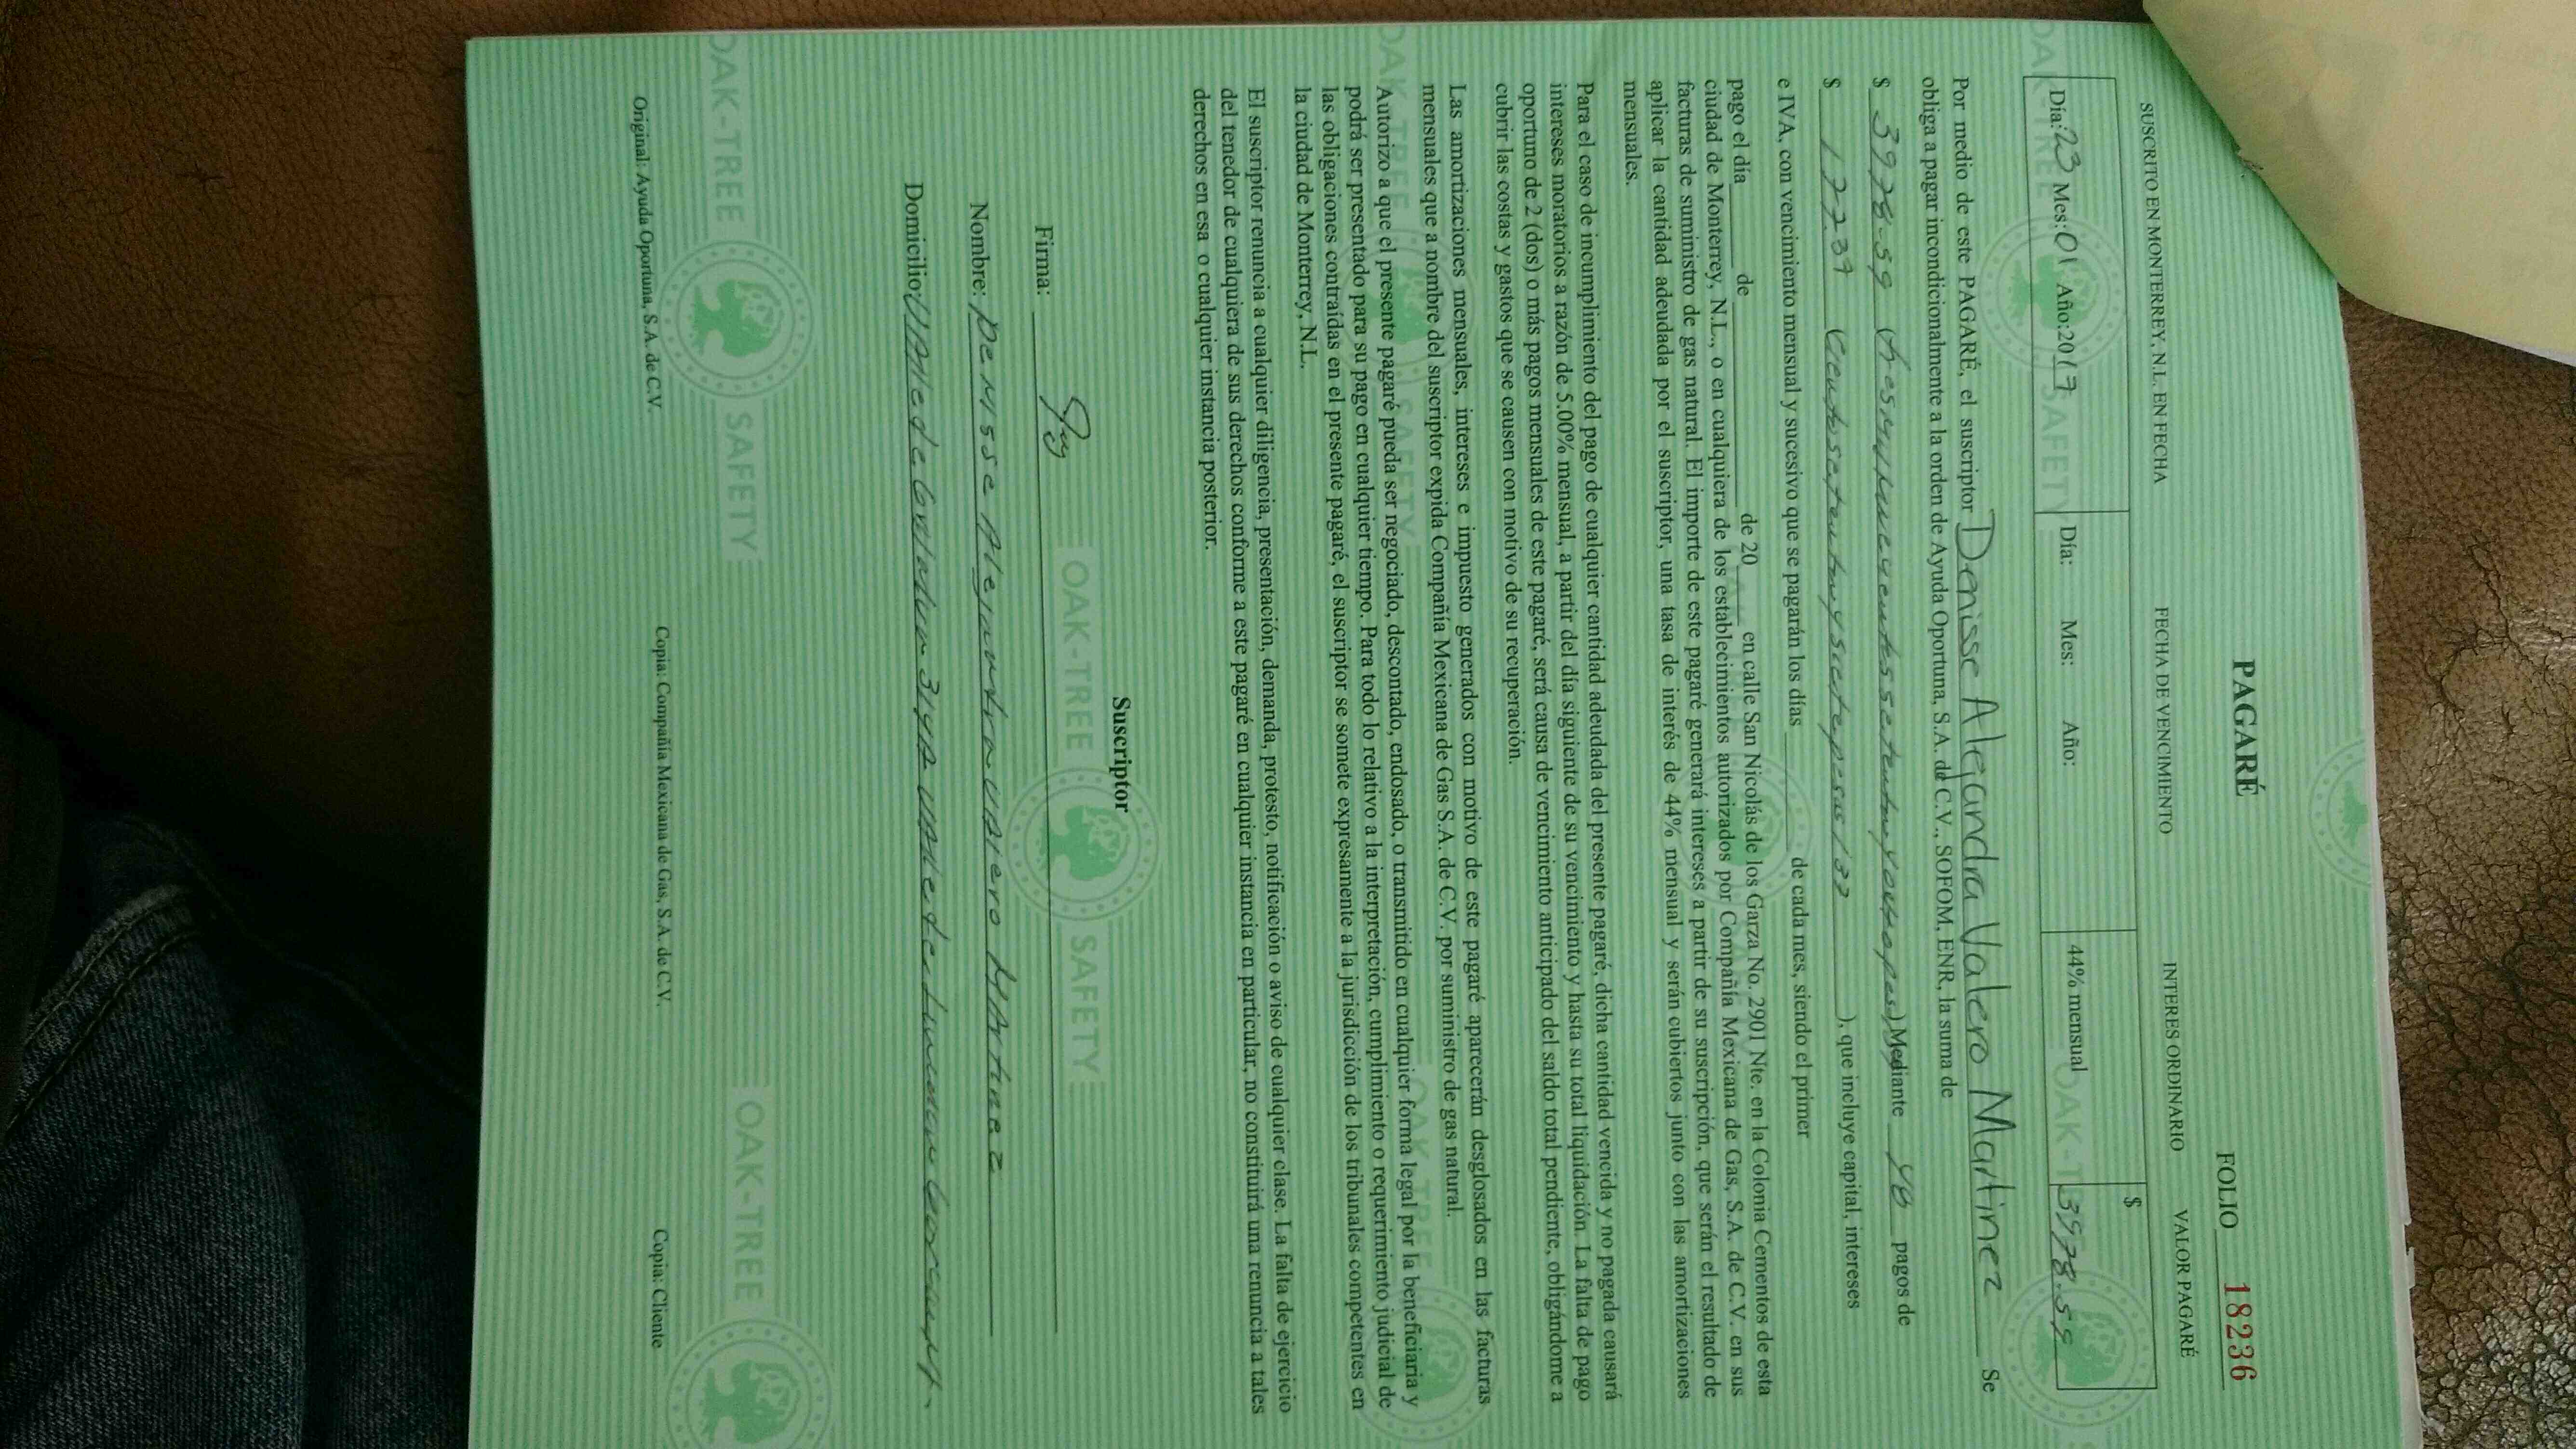 PAGARÉ
FOLIO 18236
SUSCRITO EN MONTERREY, N.L. EN FECHA FECHA DE VENCIMIENTO INTERES ORDINARIO VALOR PAGARÉ
Día: 23 Mes: 01 Año: 2017 Día: Mes: Año: 44% mensual $ 3978.59
Por medio de este PAGARÉ, el suscriptor Denisse Alejandra Valero Martinez Se
obliga a pagar incondicionalmente a la orden de Ayuda Oportuna, S.A. de C.V., SOFOM, ENR, la suma de
$ 3978.59 ( Mediante pagos de
$ 177.39 ( ), que incluye capital, intereses
e IVA, con vencimiento mensual y sucesivo que se pagarán los días de cada mes, siendo el primer
pago el día de de 20 en calle San Nicolás de los Garza No. 2901 Nte. en la Colonia Cementos de esta
ciudad de Monterrey, N.L., o en cualquiera de los establecimientos autorizados por Compañía Mexicana de Gas, S.A. de C.V. en sus
facturas de suministro de gas natural. El importe de este pagaré generará intereses a partir de su suscripción, que serán el resultado de
aplicar la cantidad adeudada por el suscriptor, una tasa de interés de 44% mensual y serán cubiertos junto con las amortizaciones
mensuales.
Para el caso de incumplimiento del pago de cualquier cantidad adeudada del presente pagaré, dicha cantidad vencida y no pagada causará
intereses moratorios a razón de 5.00% mensual, a partir del día siguiente de su vencimiento y hasta su total liquidación. La falta de pago
oportuno de 2 (dos) o más pagos mensuales de este pagaré, será causa de vencimiento anticipado del saldo total pendiente, obligándome a
cubrir las costas y gastos que se causen con motivo de su recuperación.
Las amortizaciones mensuales, intereses e impuesto generados con motivo de este pagaré aparcerán desglosados en las facturas
mensuales que a nombre del suscriptor expida Compañía Mexicana de Gas S.A. de C.V. por suministro de gas natural.
Autorizo a que el presente pagaré pueda ser negociado, descontado, endosado, o transmitido en cualquier forma legal por la beneficiaria y
podrá ser presentado para su pago en cualquier tiempo. Para todo lo relativo a la interpretación, cumplimiento o requerimiento judicial de
las obligaciones contraídas en el presente pagaré, el suscriptor se somete expresamente a la jurisdicción de los tribunales competentes en
la ciudad de Monterrey, N.L.
El suscriptor renuncia a cualquier diligencia, presentación, demanda, protesto, notificación o aviso de cualquier clase. La falta de ejercicio
del tenedor de cualquiera de sus derechos conforme a este pagaré en cualquier instancia en particular, no constituirá una renuncia a tales
derechos en esa o cualquier instancia posterior.
Suscriptor
Firma:
Nombre: Denisse Alejandra Valero Martinez
Domicilio:
OAK-TREE SAFETY OAK-TREE
Original: Ayuda Oportuna, S.A. de C.V. Copia: Compañía Mexicana de Gas, S.A. de C.V. Copia: Cliente